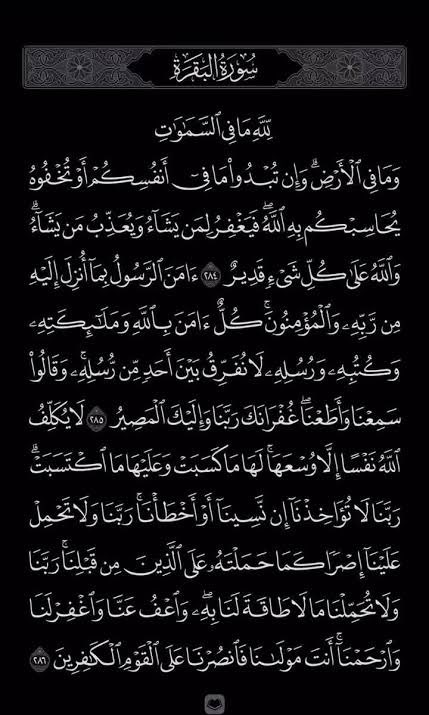 سُورَةُ البَقَرَةِ
لِّلَّهِ مَا فِي ٱلسَّمَٰوَٰتِ
وَمَا فِي ٱلۡأَرۡضِۗ وَإِن تُبۡدُواْ مَا فِيٓ أَنفُسِكُمۡ أَوۡ تُخۡفُوهُ
يُحَاسِبۡكُم بِهِ ٱللَّهُۖ فَيَغۡفِرُ لِمَن يَشَآءُ وَيُعَذِّبُ مَن يَشَآءُۗ
وَٱللَّهُ عَلَىٰ كُلِّ شَيۡءٖ قَدِيرٌ ٢٨٤ ءَامَنَ ٱلرَّسُولُ بِمَآ أُنزِلَ إِلَيۡهِ
مِن رَّبِّهِۦ وَٱلۡمُؤۡمِنُونَۚ كُلٌّ ءَامَنَ بِٱللَّهِ وَمَلَٰٓئِكَتِهِۦ
وَكُتُبِهِۦ وَرُسُلِهِۦ لَا نُفَرِّقُ بَيۡنَ أَحَدٖ مِّن رُّسُلِهِۦۚ وَقَالُواْ
سَمِعۡنَا وَأَطَعۡنَاۖ غُفۡرَانَكَ رَبَّنَا وَإِلَيۡكَ ٱلۡمَصِيرُ ٢٨٥ لَا يُكَلِّفُ
ٱللَّهُ نَفۡسًا إِلَّا وُسۡعَهَاۚ لَهَا مَا كَسَبَتۡ وَعَلَيۡهَا مَا ٱكۡتَسَبَتۡۗ
رَبَّنَا لَا تُؤَاخِذۡنَآ إِن نَّسِينَآ أَوۡ أَخۡطَأۡنَاۚ رَبَّنَا وَلَا تَحۡمِلۡ
عَلَيۡنَآ إِصۡرٗا كَمَا حَمَلۡتَهُۥ عَلَى ٱلَّذِينَ مِن قَبۡلِنَاۚ رَبَّنَا
وَلَا تُحَمِّلۡنَا مَا لَا طَاقَةَ لَنَا بِهِۦۖ وَٱعۡفُ عَنَّا وَٱغۡفِرۡ لَنَا
وَٱرۡحَمۡنَآۚ أَنتَ مَوۡلَىٰنَا فَٱنصُرۡنَا عَلَى ٱلۡقَوۡمِ ٱلۡكَٰفِرِينَ ٢٨٦